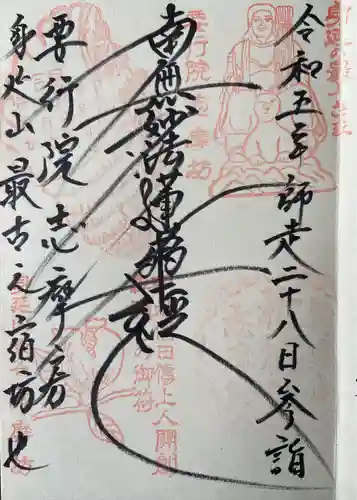 令和五年師走二十八日参詣
南無妙法蓮華経
要行院志摩房
身延山最古之宿坊也
要行院志摩坊
日信上人開創